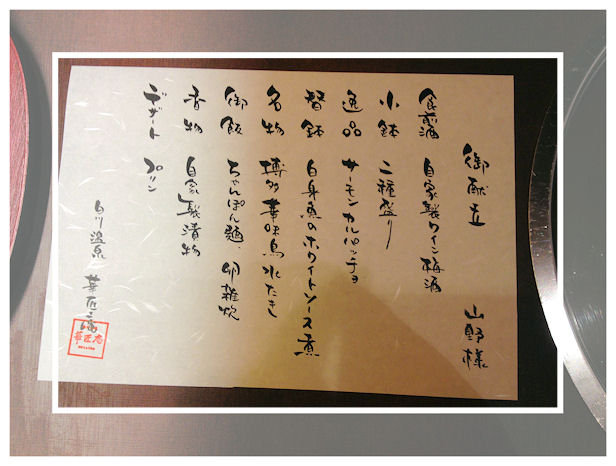 御献立 山野様
食前酒 自家製ワイン梅酒
小鉢 二種盛り
逸品 サーモンカルパッチョ
替鉢 白身魚のホワイトソース煮
名物 博多華味鳥水たきし
御飯 ちゃんぽん麺、卵雑炊
香物 自家製漬物
デザート プリン
白川温泉
華匠